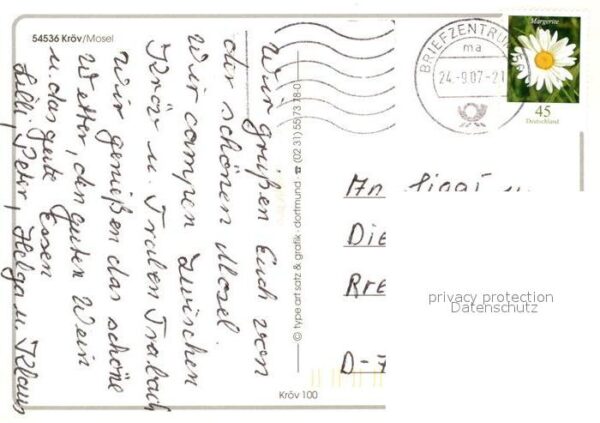 54536 Kröv/Mosel
Wir grüßen Euch von
der schönen Mosel.
Wir campen zwischen
Kröv u. Traben Trabach
Wir genießen das schöne
Wetter, den guten Wein
u. das gute Essen
Lilli, Peter, Helga u. Klaus
© type art satz & grafik · dortmund · ☎ (02 31) 55 73 78-0
Kröv 100
BRIEFZENTRUM
ma
24.-9.07-21
Margerite
45
Deutschland
An Siggi u
Die
Kre
D-7
privacy protection
Datenschutz